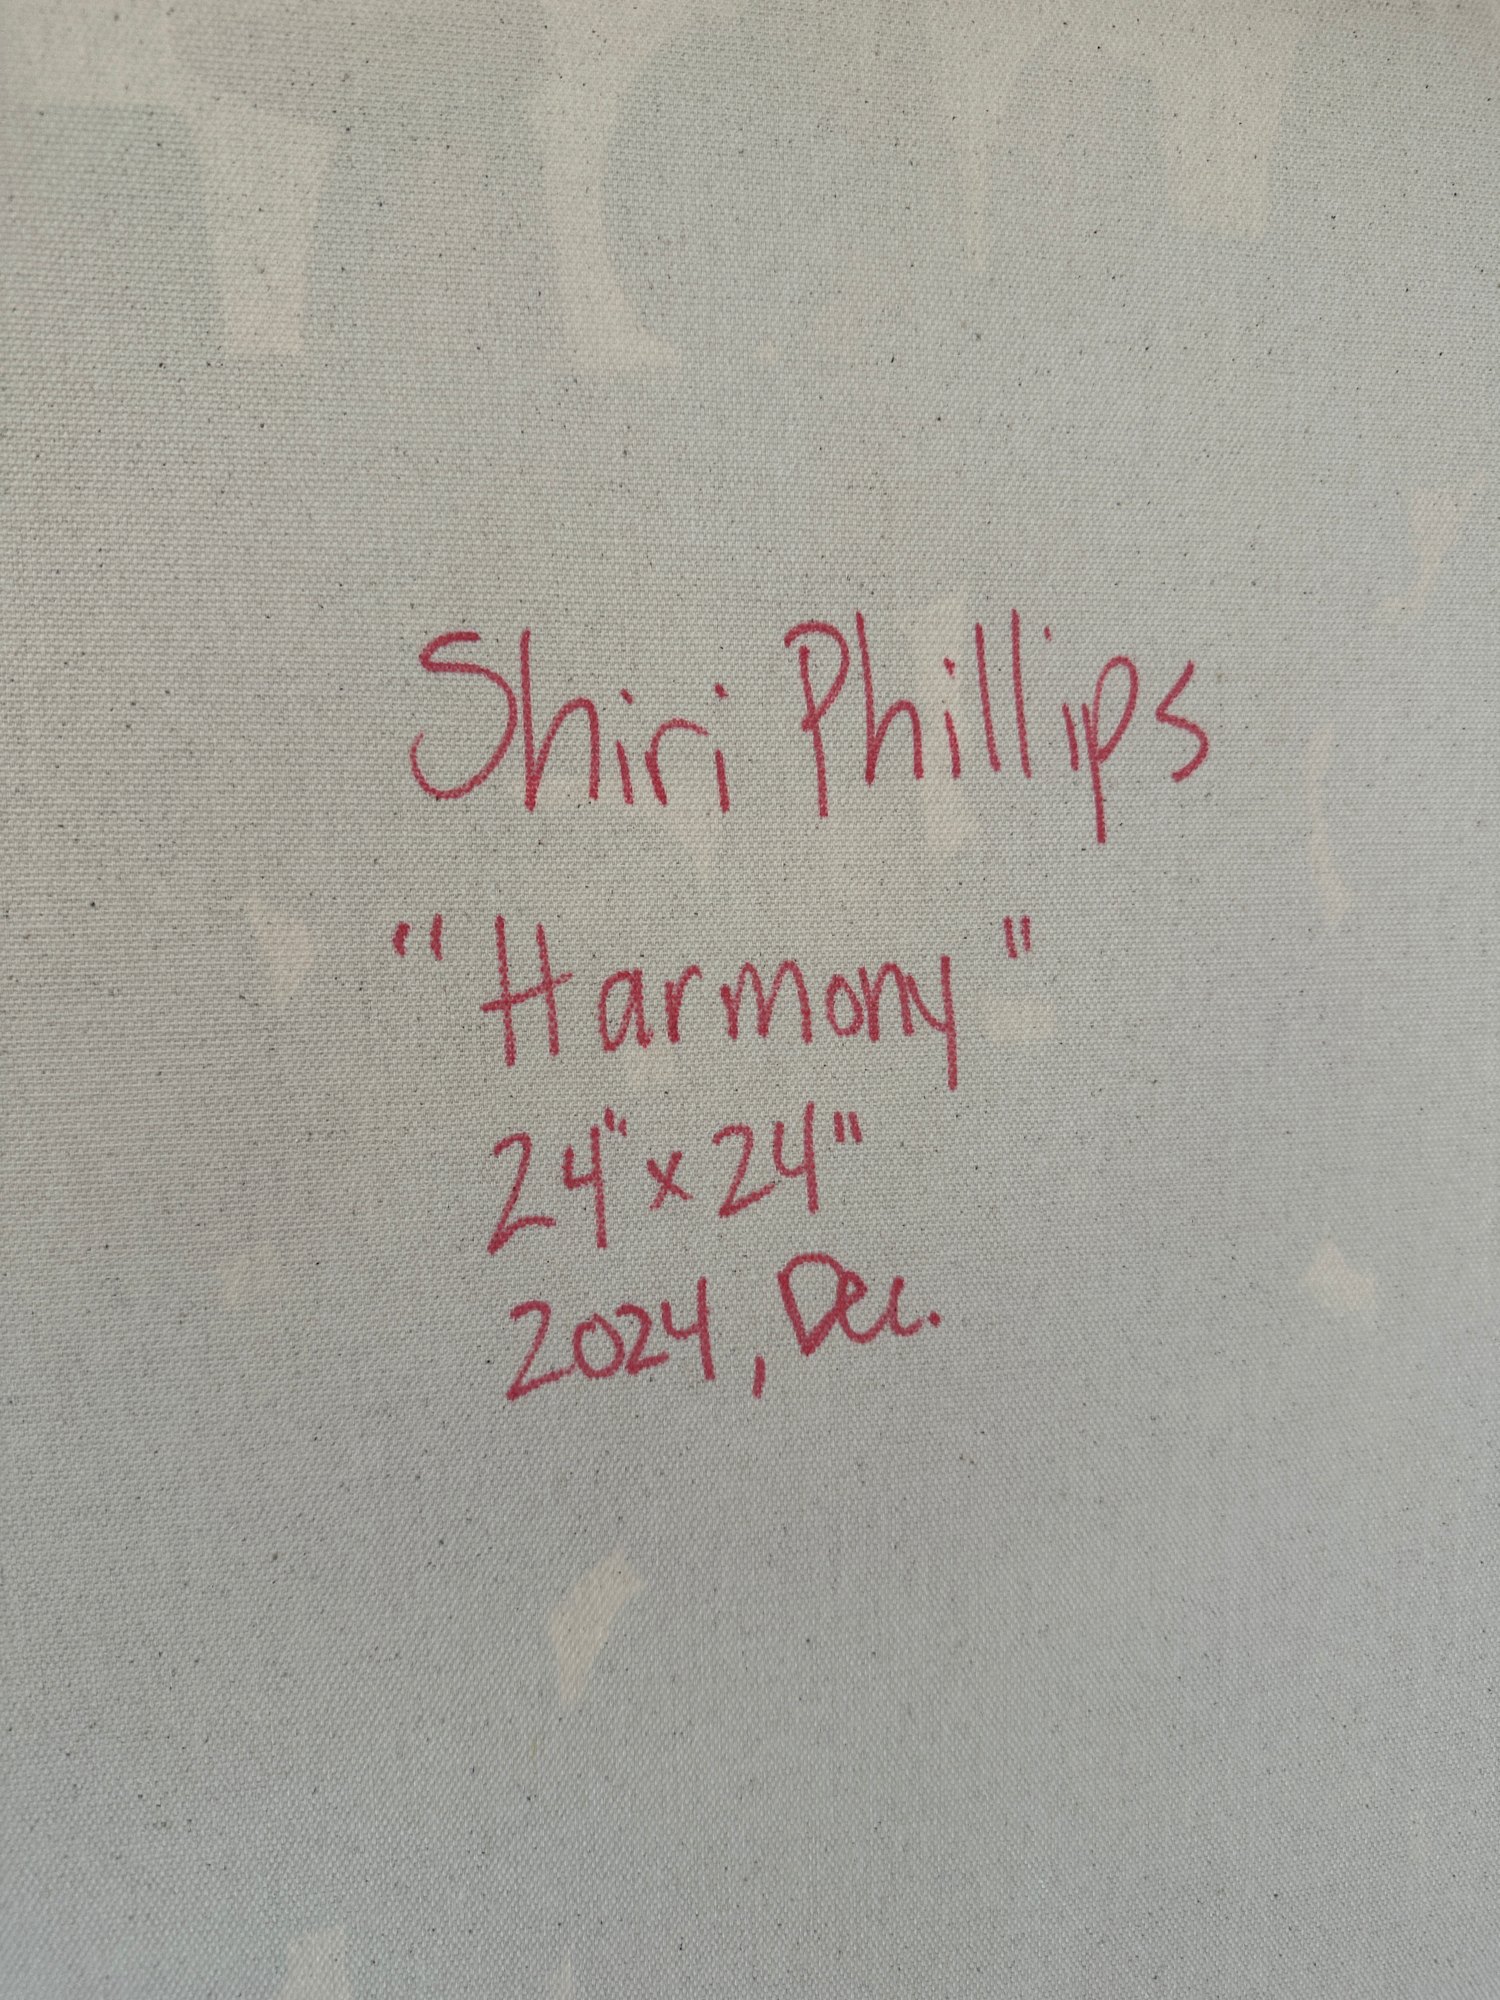 Shiri Phillips
"Harmony"
24"x24"
2024, Dec.